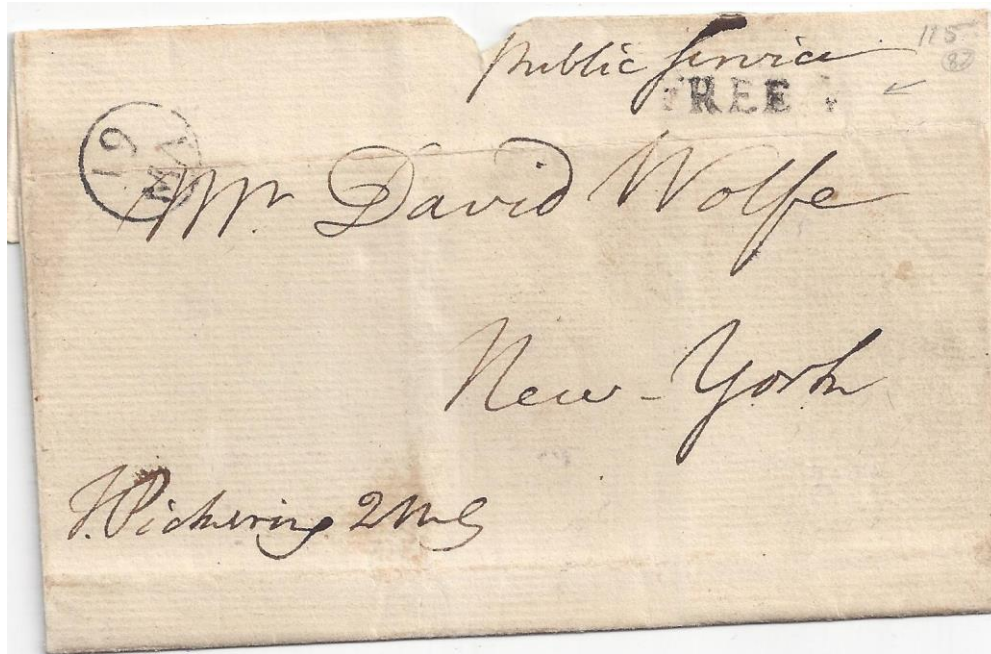 Public Service
115
87
FREE
19
MA
Mr David Wolfe
New-York
T. Pickering 2MG